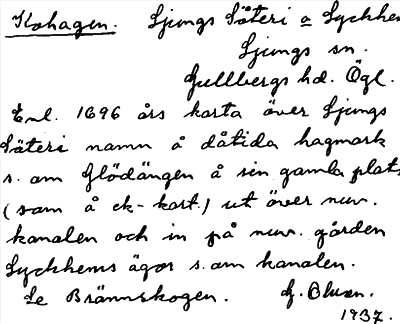 Kohagen. Ljungs Säteri o Lyckhem
Ljungs sn.
Gullbergs hd. Ögl.
Enl. 1696 års karta över Ljungs
Säteri namn å dåtida hagmark
s. om Glödängen å sin gamla plats
(som å ek-kart.) ut över nuv.
kanalen och in på nuv. gården
Lyckhems ägor s. om kanalen.
Se Brännskogen. G.
1937.